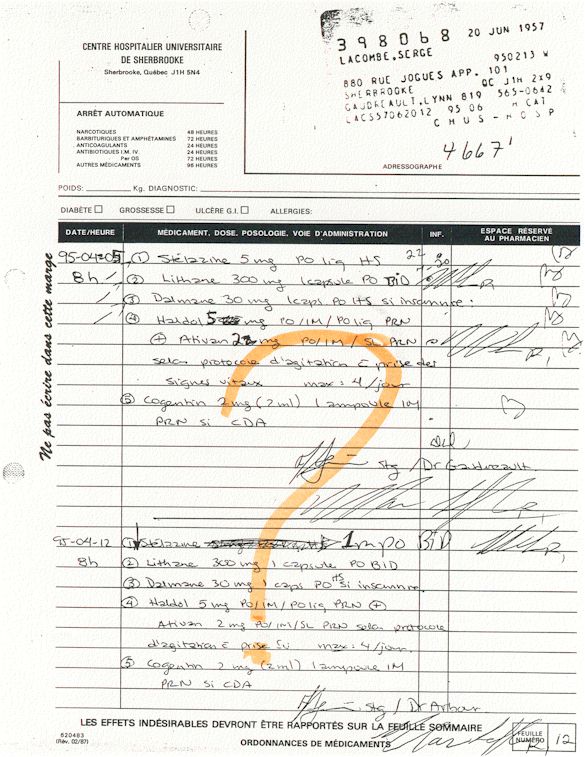 CENTRE HOSPITALIER UNIVERSITAIRE
DE SHERBROOKE
Sherbrooke, Québec J1H 5N4
ARRÊT AUTOMATIQUE
NARCOTIQUES 48 HEURES
BARBITURIQUES ET AMPHÉTAMINES 72 HEURES
ANTICOAGULANTS 24 HEURES
ANTIBIOTIQUES I.M. IV. 24 HEURES
Per OS 72 HEURES
AUTRES MÉDICAMENTS 96 HEURES
398068 20 JUN 1957
LACOMBE,SERGE
950213 W
880 RUE JOGUES APP. 101
SHERBROOKE QC J1H 2X9
GAUDREAULT,LYNN 819 565-0642
LACS57062012 95 06 M CAT
CHUS-HOSP
4667
ADRESSOGRAPHE
POIDS: Kg. DIAGNOSTIC:
DIABÈTE GROSSESSE ULCÈRE G.I. ALLERGIES:
DATE/HEURE MÉDICAMENT, DOSE, POSOLOGIE, VOIE D'ADMINISTRATION INF. ESPACE RÉSERVÉ AU PHARMACIEN
Ne pas écrire dans cette marge
95-04-05 ① Stélazine 5 mg PO liq HS 22
8h ② Lithane 300 mg 1 capsule PO BID
③ Dalmane 30 mg 1 caps PO HS si insomnie
④ Haldol 5 mg PO/IM/PO liq PRN
⊕ Ativan 2 mg PO/IM/SL PRN
selon protocole d'agitation c̄ prise des
signes vitaux max: 4/jour
⑤ Cogentin 2 mg (2 ml) 1 ampoule IM
PRN si CDA
stg / Dr Gaudreault
95-04-12 ① Stélazine 1 m po BID
8h ② Lithane 300 mg 1 capsule PO BID
③ Dalmane 30 mg 1 caps PO HS si insomnie
④ Haldol 5 mg PO/IM/PO liq PRN ⊕
Ativan 2 mg PO/IM/SL PRN selon protocole
d'agitation c̄ prise SV max: 4/jour
⑤ Cogentin 2 mg (2 ml) 1 ampoule IM
PRN si CDA
stg / Dr Arbour
?
LES EFFETS INDÉSIRABLES DEVRONT ÊTRE RAPPORTÉS SUR LA FEUILLE SOMMAIRE
620483
(Rév. 02/87)
ORDONNANCES DE MÉDICAMENTS
FEUILLE NUMÉRO 12